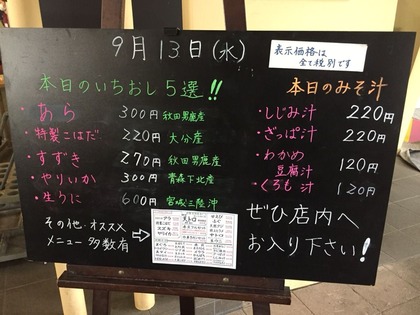 9月13日(水)
表示価格は
全て税別です
本日のいちおし5選!!
・あら 300円 秋田男鹿産
・特製こはだ 220円 大分産
・すずき 270円 秋田男鹿産
・やりいか 300円 青森下北産
・生うに 600円 宮城三陸沖
その他・オススメ
メニュー多数有
本日のみそ汁
・しじみ汁 220円
・ざっぱ汁 220円
・わかめ
豆腐汁 120円
・くろも汁 120円
ぜひ店内へ
お入り下さい!